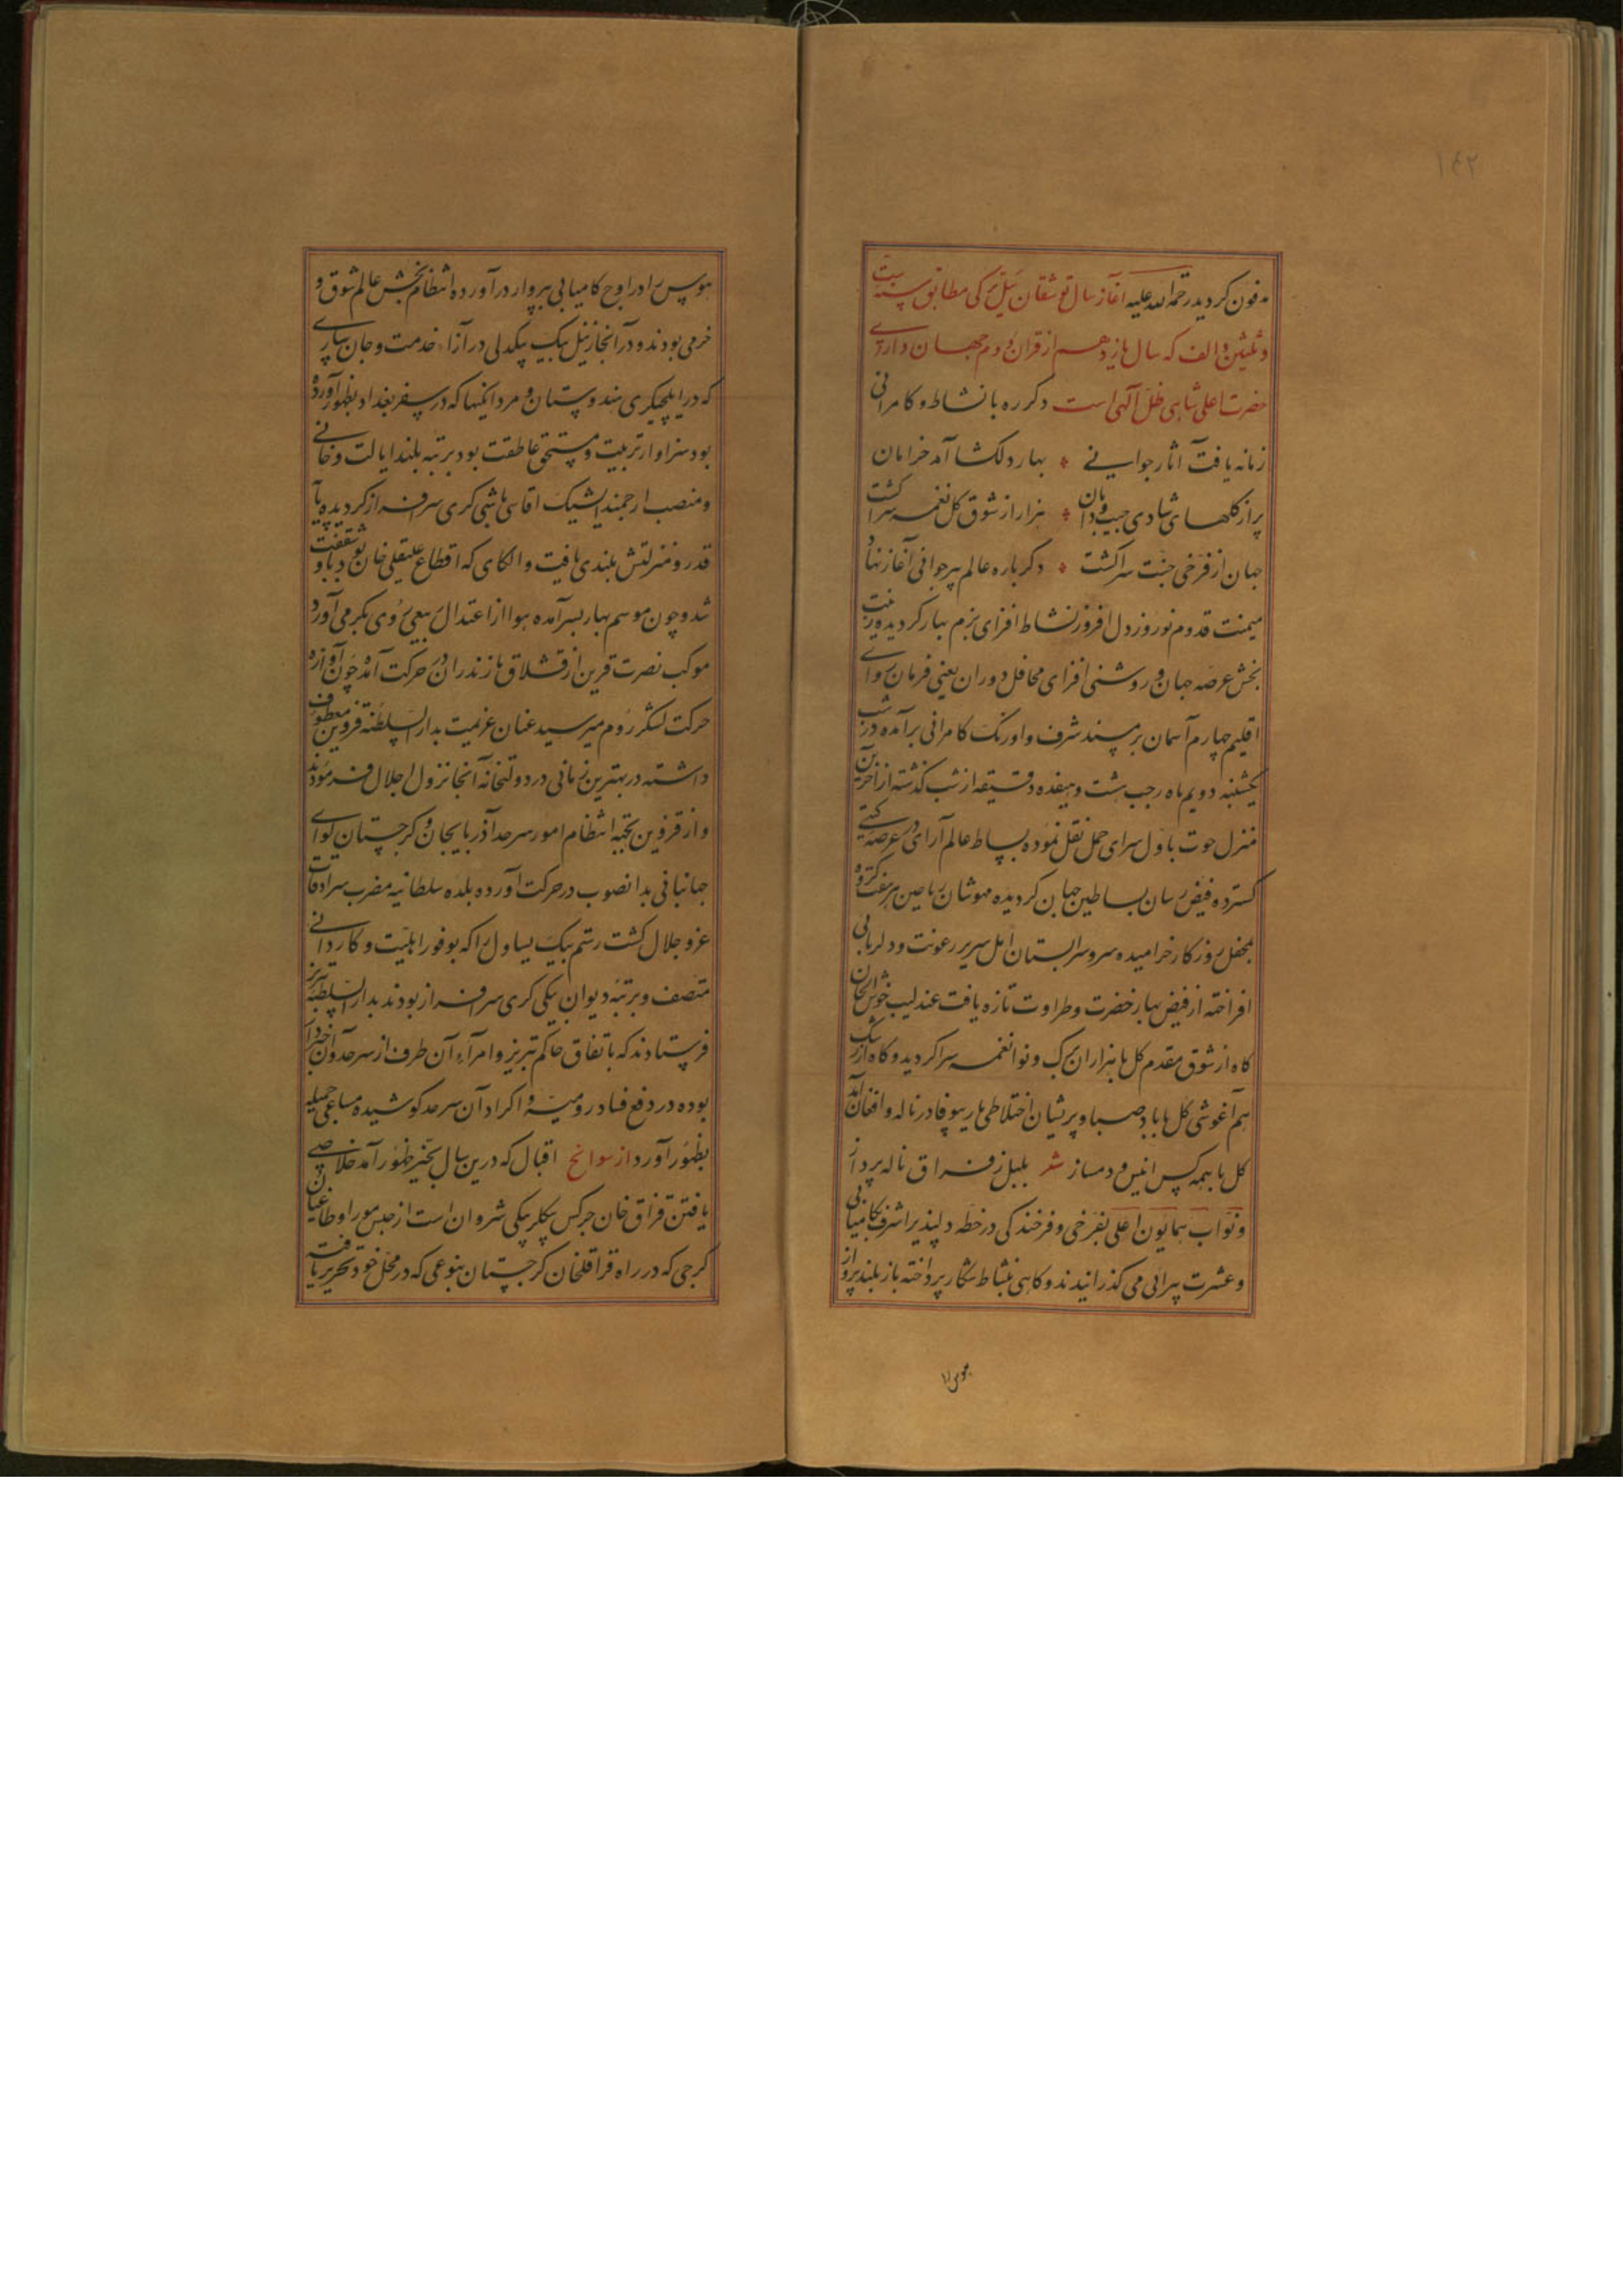 ۱۴۲
مدفون گردید رحمة الله علیه آغاز سال توشقان ئیل ترکی مطابق سنه ست
و ثلثین و الف که سال یازدهم از قران دوم جهان دارای
حضرت اعلی شاهی ظل آلهی است دکر ره با نشاط و کامرانی
زمانه یافت آثار جوانی بهار دلکشا آمد خرامان
پر از کلهای شادی جیب و دامان هزار از شوق کل نغمه سرا کشت
جهان از فرخی جنت سرا کشت دکر باره عالم پیر جوانی آغاز نهاد
میمنت قدوم نوروز دل افروز نشاط افزای بزم بهار کردیده زینت
بخش عرصه جهان و روشنی افزای محافل دوران یعنی فرمان روای
اقلیم چهارم آسمان بر مسند شرف و اورنک کامرانی برآمده در شب
یکشنبه دویم ماه رجب هشت و هیفده دقیقه از شب کذشته از آخرین
منزل حوت باول سرای حمل نقل نموده بساط عالم آرای در عرصه کیتی
کسترده فیض رسان بساطین جهان کردیده مهوشان ریاحین هر هفت کرده
بمحفل روزکار خرامیده سرو سرابستان امل سریر رعونت و دلربائی
افراخته از فیض بهار خضرت و طراوت تازه یافت عندلیب خوش الحان
کاه از شوق مقدم کل با هزاران برک و نوا نغمه سرا کردید و کاه از رشک
هم آغوشی کل با باد صبا و پریشان اختلاطی یار بیوفا در ناله و افغان آمد
کل با همه کس انیس و دمساز شعر بلبل ز فراق ناله پرداز
و نواب همایون اعلی بفرخی و فرخندکی در خطه دلپذیر اشرف بکامیابی
و عشرت پیرائی می کذرانیدند و کاهی بنشاط شکار پرداخته باز بلند پرواز
هوس را
هوس را در اوج کامیابی بپرواز در آورده انتظام بخش عالم شوق و
خرمی بودند و در آنجا زینل بیک بیکدلی در آزاء خدمت و جان سپاری
که در ایلچیکری هندوستان و مردانکیها که در سفر بغداد بظهور آورده
بود سزاوار تربیت و مستحق عاطفت بود برتبه بلند ایالت و خانی
و منصب ارجمند ایشیک اقاسی باشی کری سرافراز کردیده پایه
قدر و منزلتش بلندی یافت و الکای که اقطاع علیقلی خان بود باو شفقت
شد و چون موسم بهار بسر آمده هوا از اعتدال ربیعی روی بکرمی آورد
موکب نصرت قرین از قشلاق مازندران در حرکت آمد چون آوازه
حرکت لشکر روم میرسید عنان عزیمت بدار السلطنة قزوین معطوف
داشته در بهترین زمانی در دولتخانه آنجا نزول اجلال فرمودند
و از قزوین بجهة انتظام امور سرحد آذربایجان و کرجستان لوای
جهانبانی بدانصوب در حرکت آورده بلده سلطانیه مضرب سرادقات
عز و جلال کشت رستم بیک یساول را که بوفور اهلیت و کاردانی
متصف و برتبه دیوان بیکی کری سرافراز بودند بدار السلطنه تبریز
فرستادند که باتفاق حاکم تبریز و امرآء آن طرف از سرحد و آن خبردار
بوده در دفع فساد رومیه و اکراد آن سرحد کوشیده مساعی جمیله
بظهور آورد از سوانح اقبال که درین سال بحیز ظهور آمد خلاصی
یافتن قزاق خان چرکس بیکلربیکی شروان است از حبس موراو طاغیان
کرجی که در راه قراقلخان کرجستان بنوعی که در محل خود تحریر یافته